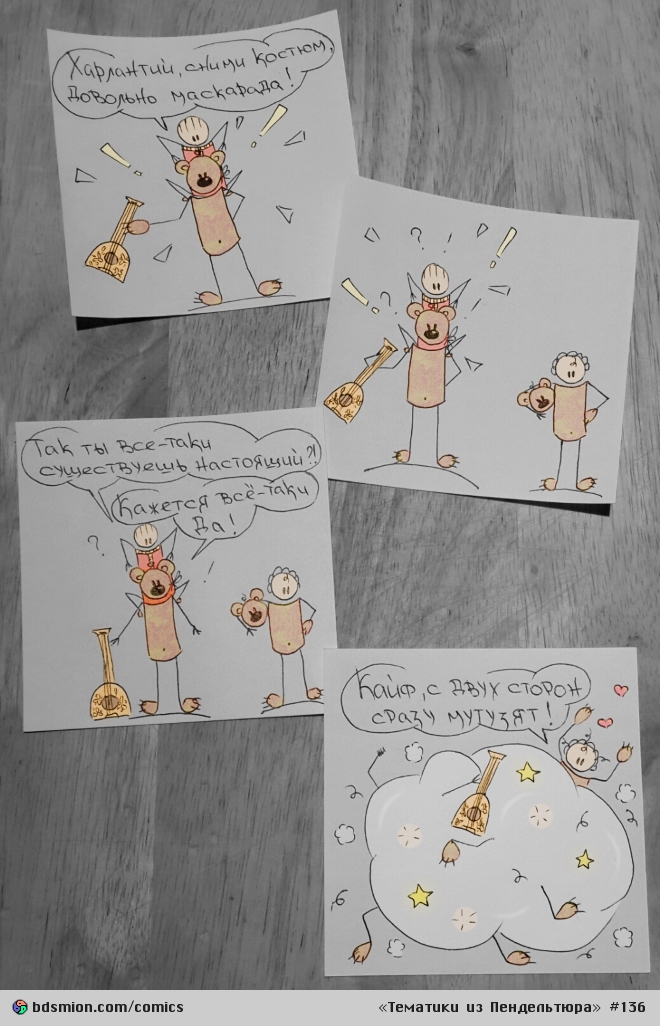 Харлантий, сними костюм,
довольно маскарада!
?
!
Так ты все-таки
существуешь настоящий?!
Кажется всё-таки
да!
?
!
Кайф, с двух сторон
сразу мутузят!
bdsmion.com/comics
«Тематики из Пендельтюра» #136